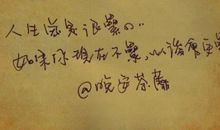 人生总是很累的..
如果你现在不累,以后会更累
@晚安荼蘼